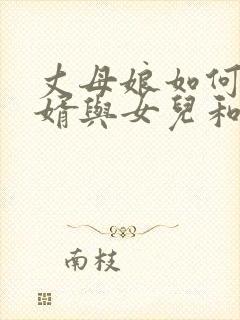 丈母娘如何
婿與女兒和
南枝